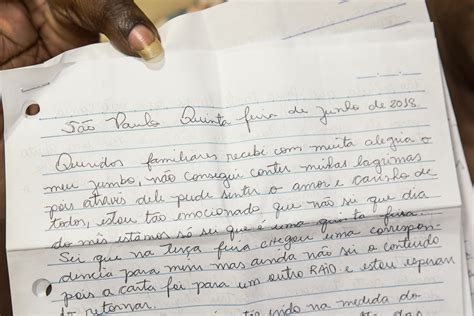 São Paulo Quinta feira de Junho de 2018
Queridos familiares recebi com muita alegria o
meu jumbo, não consegui conter minhas lagrimas
pois através dele pude sentir o amor e carinho de
todos, estou tão emocionado que não sei que dia
do mês estamos só sei que é uma quinta feira.
Sei que na terça feira chegou uma correspon-
dencia para mim mas ainda não sei o conteúdo
pois a carta foi para um outro RAIO e estou esperan
retornar.
indo na medida do